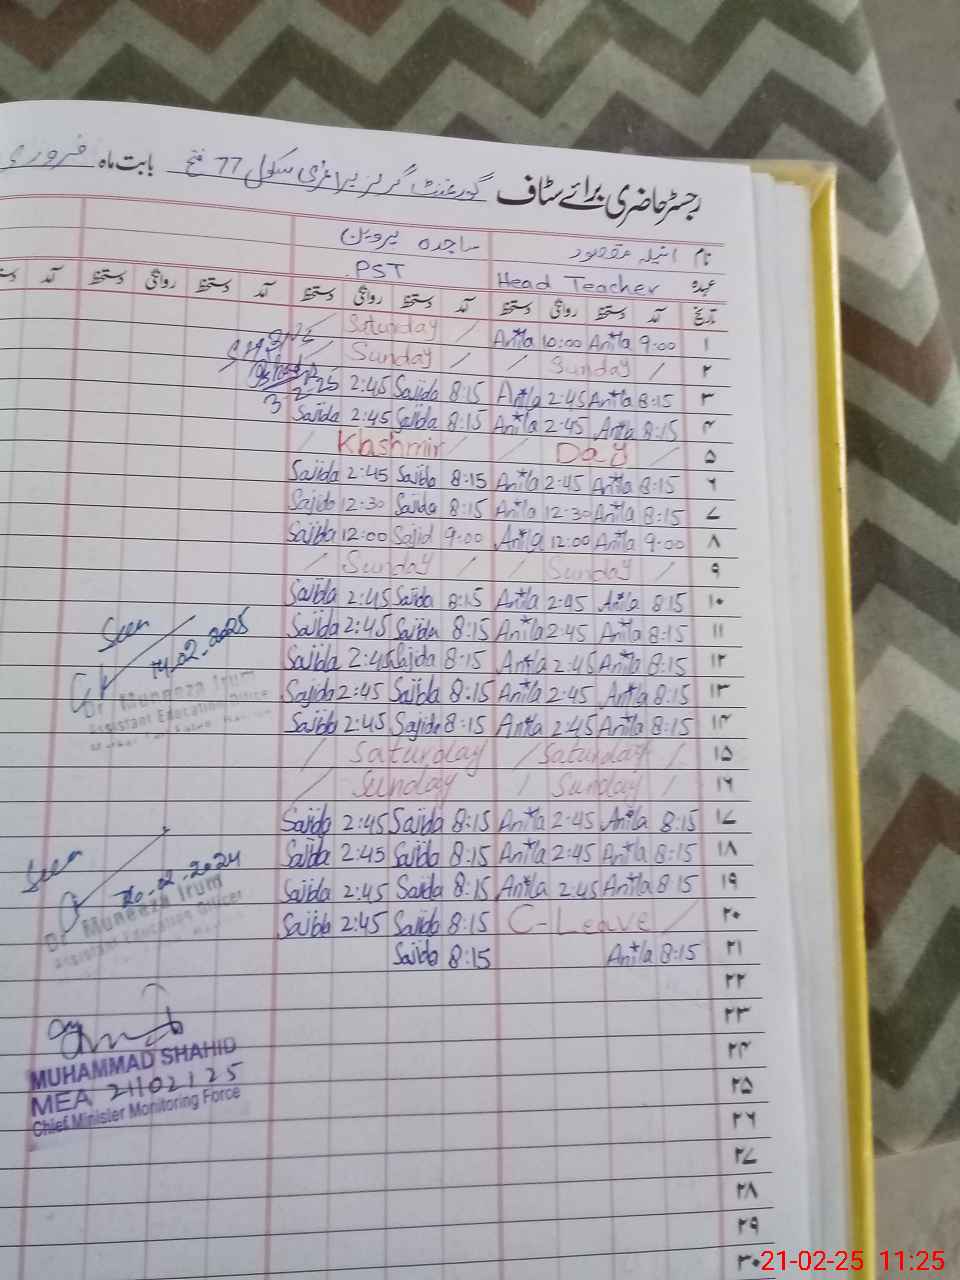 رجسٹر حاضری برائے سٹاف گورنمنٹ گرلز پرائمری سکول 77 فتح بابت ماہ فروری
نام انیلہ مقصود ساجدہ پروین
عہدہ Head Teacher PST
تاریخ آمد دستخط روانگی دستخط آمد دستخط روانگی دستخط آمد دستخط روانگی دستخط آمد
۱ 9:00 Anila 10:00 Anila / Saturday /
۲ / Sunday / / Sunday /
۳ 8:15 Anila 2:45 Anila 8:15 Sajida 2:45
3-2-25
۴ 8:15 Anila 2:45 Anila 8:15 Sajida 2:45 Sajida
۵ / Kashmir / / Day /
۶ 8:15 Anila 2:45 Anila 8:15 Sajida 2:45 Sajida
۷ 8:15 Anila 12:30 Anila 8:15 Sajida 12:30 Sajida
۸ 9:00 Anila 12:00 Anila 9:00 Sajid 12:00 Sajida
۹ / Sunday / / Sunday /
۱۰ 8:15 Anila 2:45 Anila 8:15 Sajida 2:45 Sajida
۱۱ 8:15 Anila 2:45 Anila 8:15 Sajida 2:45 Sajida
۱۲ 8:15 Anila 2:45 Anila 8:15 Sajida 2:45 Sajida
۱۳ 8:15 Anila 2:45 Anila 8:15 Sajida 2:45 Sajida
۱۴ 8:15 Anila 2:45 Anila 8:15 Sajida 2:45 Sajida
۱۵ / Saturday / / Saturday /
۱۶ / Sunday / / Sunday /
۱۷ 8:15 Anila 2:45 Anila 8:15 Sajida 2:45 Sajida
۱۸ 8:15 Anila 2:45 Anila 8:15 Sajida 2:45 Sajida
۱۹ 8:15 Anila 2:45 Anila 8:15 Sajida 2:45 Sajida
۲۰ C-Leave / 8:15 Sajida 2:45 Sajida
۲۱ 8:15 Anila 8:15 Sajida
۲۲
۲۳
۲۴
۲۵
۲۶
۲۷
۲۸
۲۹
۳۰
Seen
14.02.2025
Dr Muneeza Irum
Assistant Education Officer
Seen
20.02.2024
Dr Muneeza Irum
Assistant Education Officer
MUHAMMAD SHAHID
MEA 21/02/25
Chief Minister Monitoring Force
21-02-25 11:25